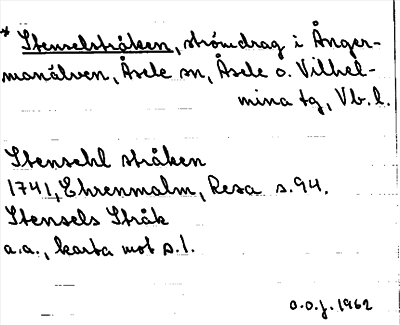 * Stenselstråken, strömdrag i Ånger-
manälven, Åsele sn, Åsele o. Vilhel-
mina tg, Vb.l.
Stensehl stråken
1741, Ehrenmalm, Resa s.94.
Stensels Stråk
a.a., karta mot s.1.
o.o.j. 1962